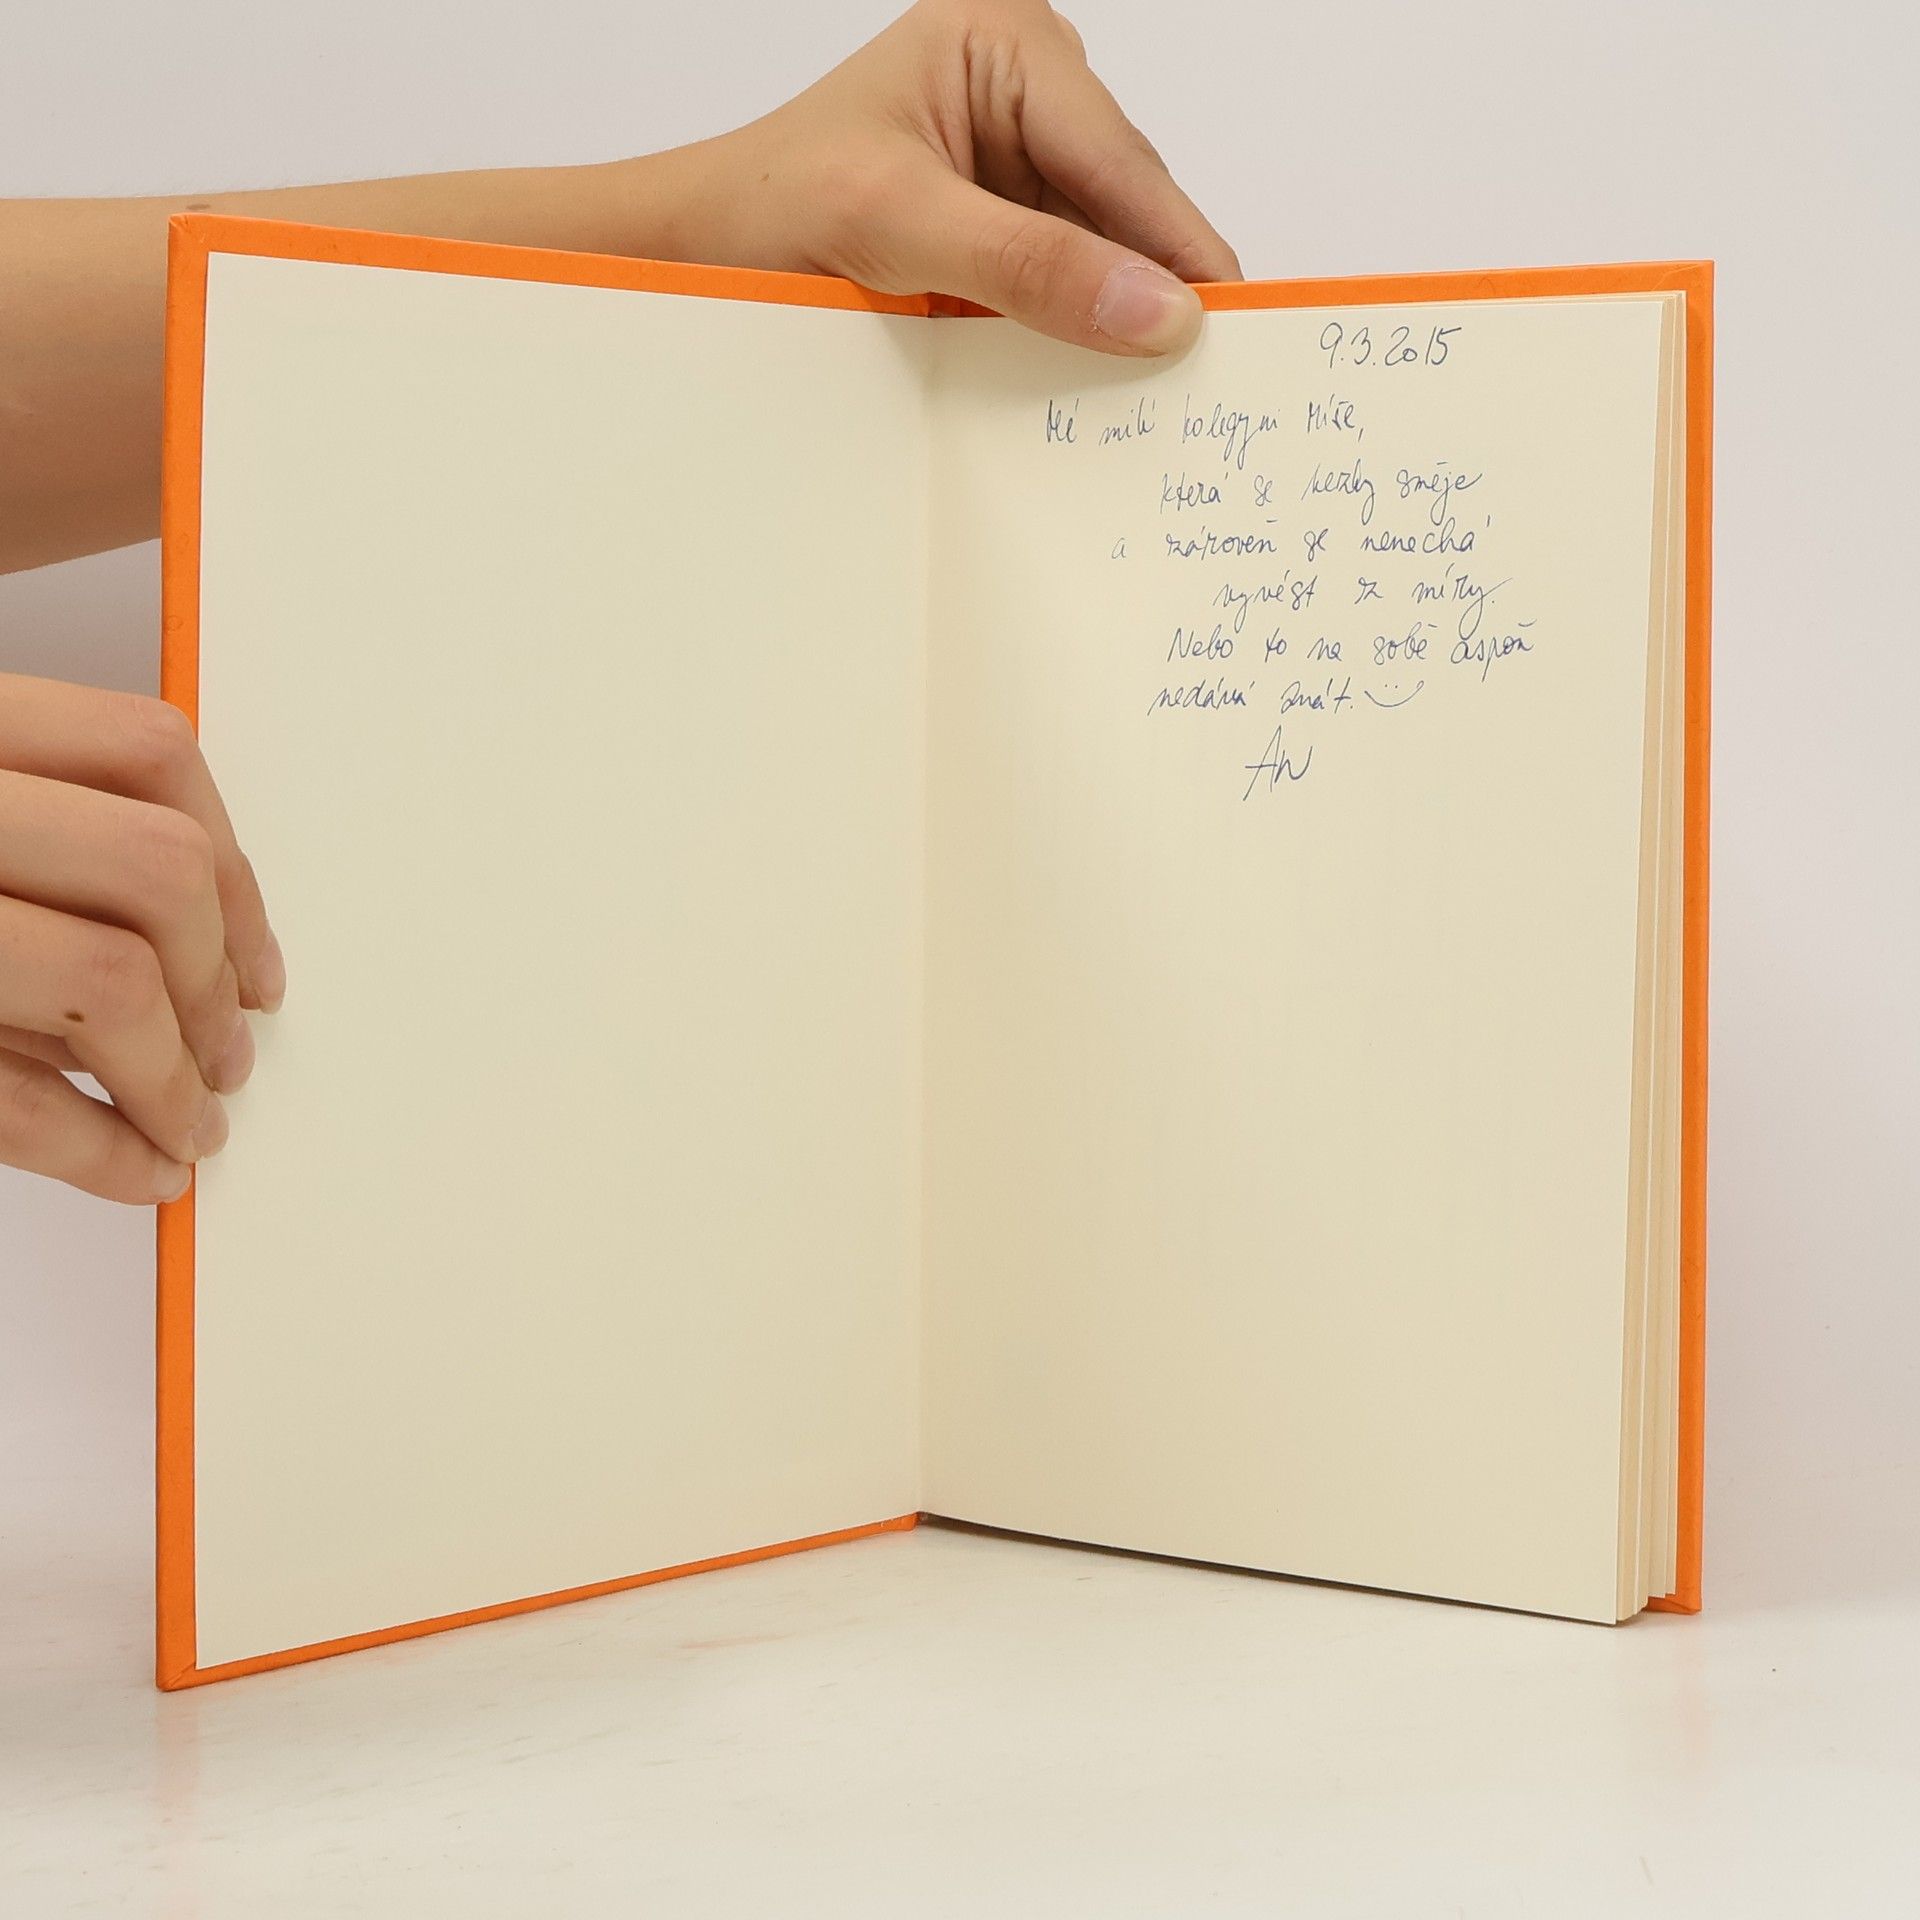 9.3.2015
Mé milé kolegyni Míše,
která se hezky směje
a zároveň se nenechá
vyvést z míry.
Nebo to na sobě aspoň
nedává znát. :)